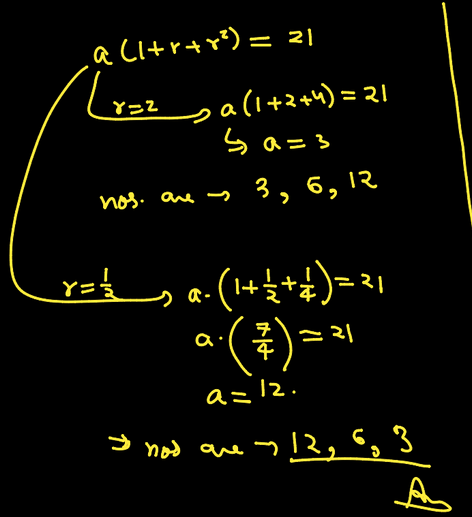 a (1+r+r²) = 21
r=2 → a (1+2+4) = 21
↳ a = 3
nos. are → 3, 6, 12
r = 1/2 → a. (1 + 1/2 + 1/4) = 21
a. (7/4) = 21
a = 12.
→ nos are → 12, 6, 3
Ans